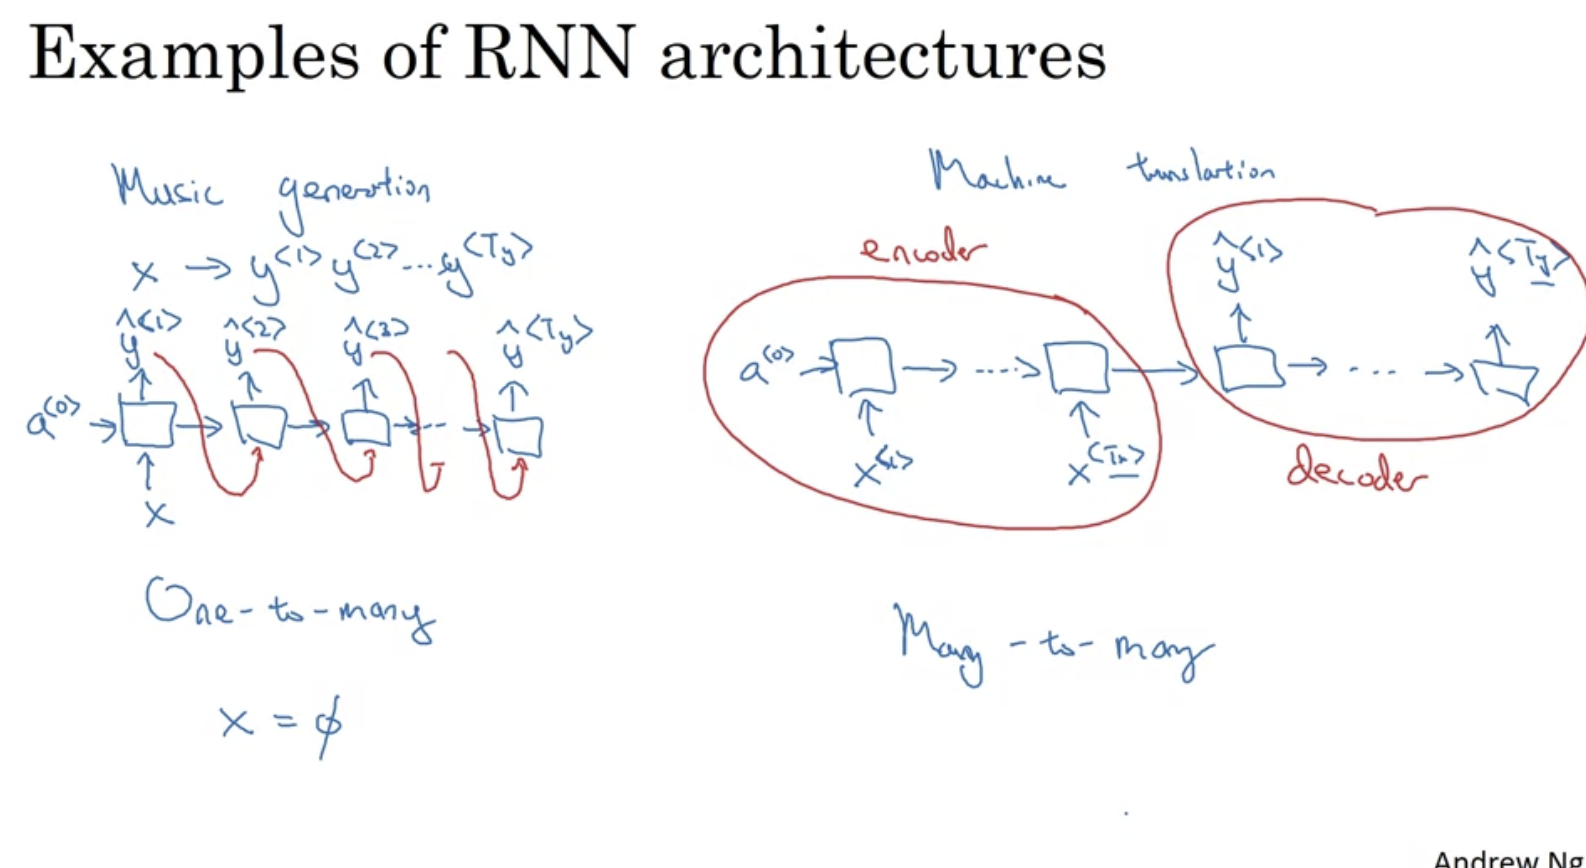 Examples of RNN architectures
Music generation
x → y<1> y<2> ... y<Ty>
ŷ<1> ŷ<2> ŷ<3> ŷ<Ty>
a<0> → → → ... →
x
One-to-many
x = ϕ
Machine translation
encoder
ŷ<1> ŷ<Ty>
a<0> → → ....> → → ... →
x<1> x<Tx>
decoder
Many-to-many
Andrew Ng